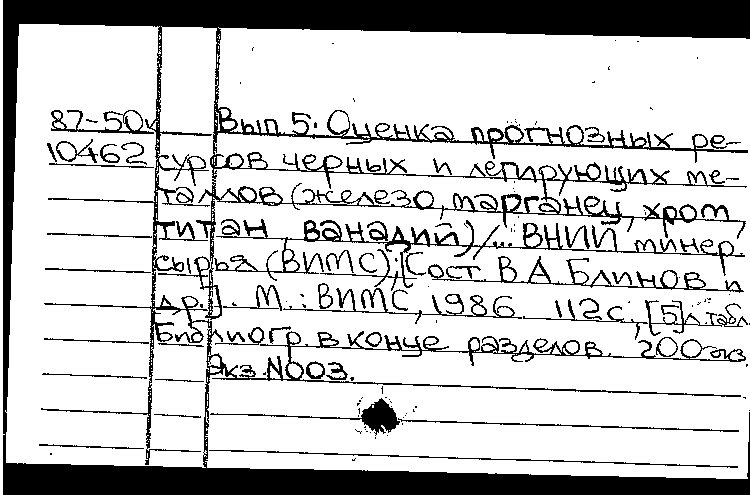 87-50 Вып. 5. Оценка прогнозных ре-
10462 сурсов черных и легирующих ме-
таллов (железо, марганец, хром,
титан, ванадий) /... ВНИИ минер.
сырья (ВИМС); [Сост. В.А. Блинов и
др.]. М.: ВИМС, 1986. 112 с., [5] л. табл.
Библиогр. в конце разделов. 200 экз.
Экз. N003.